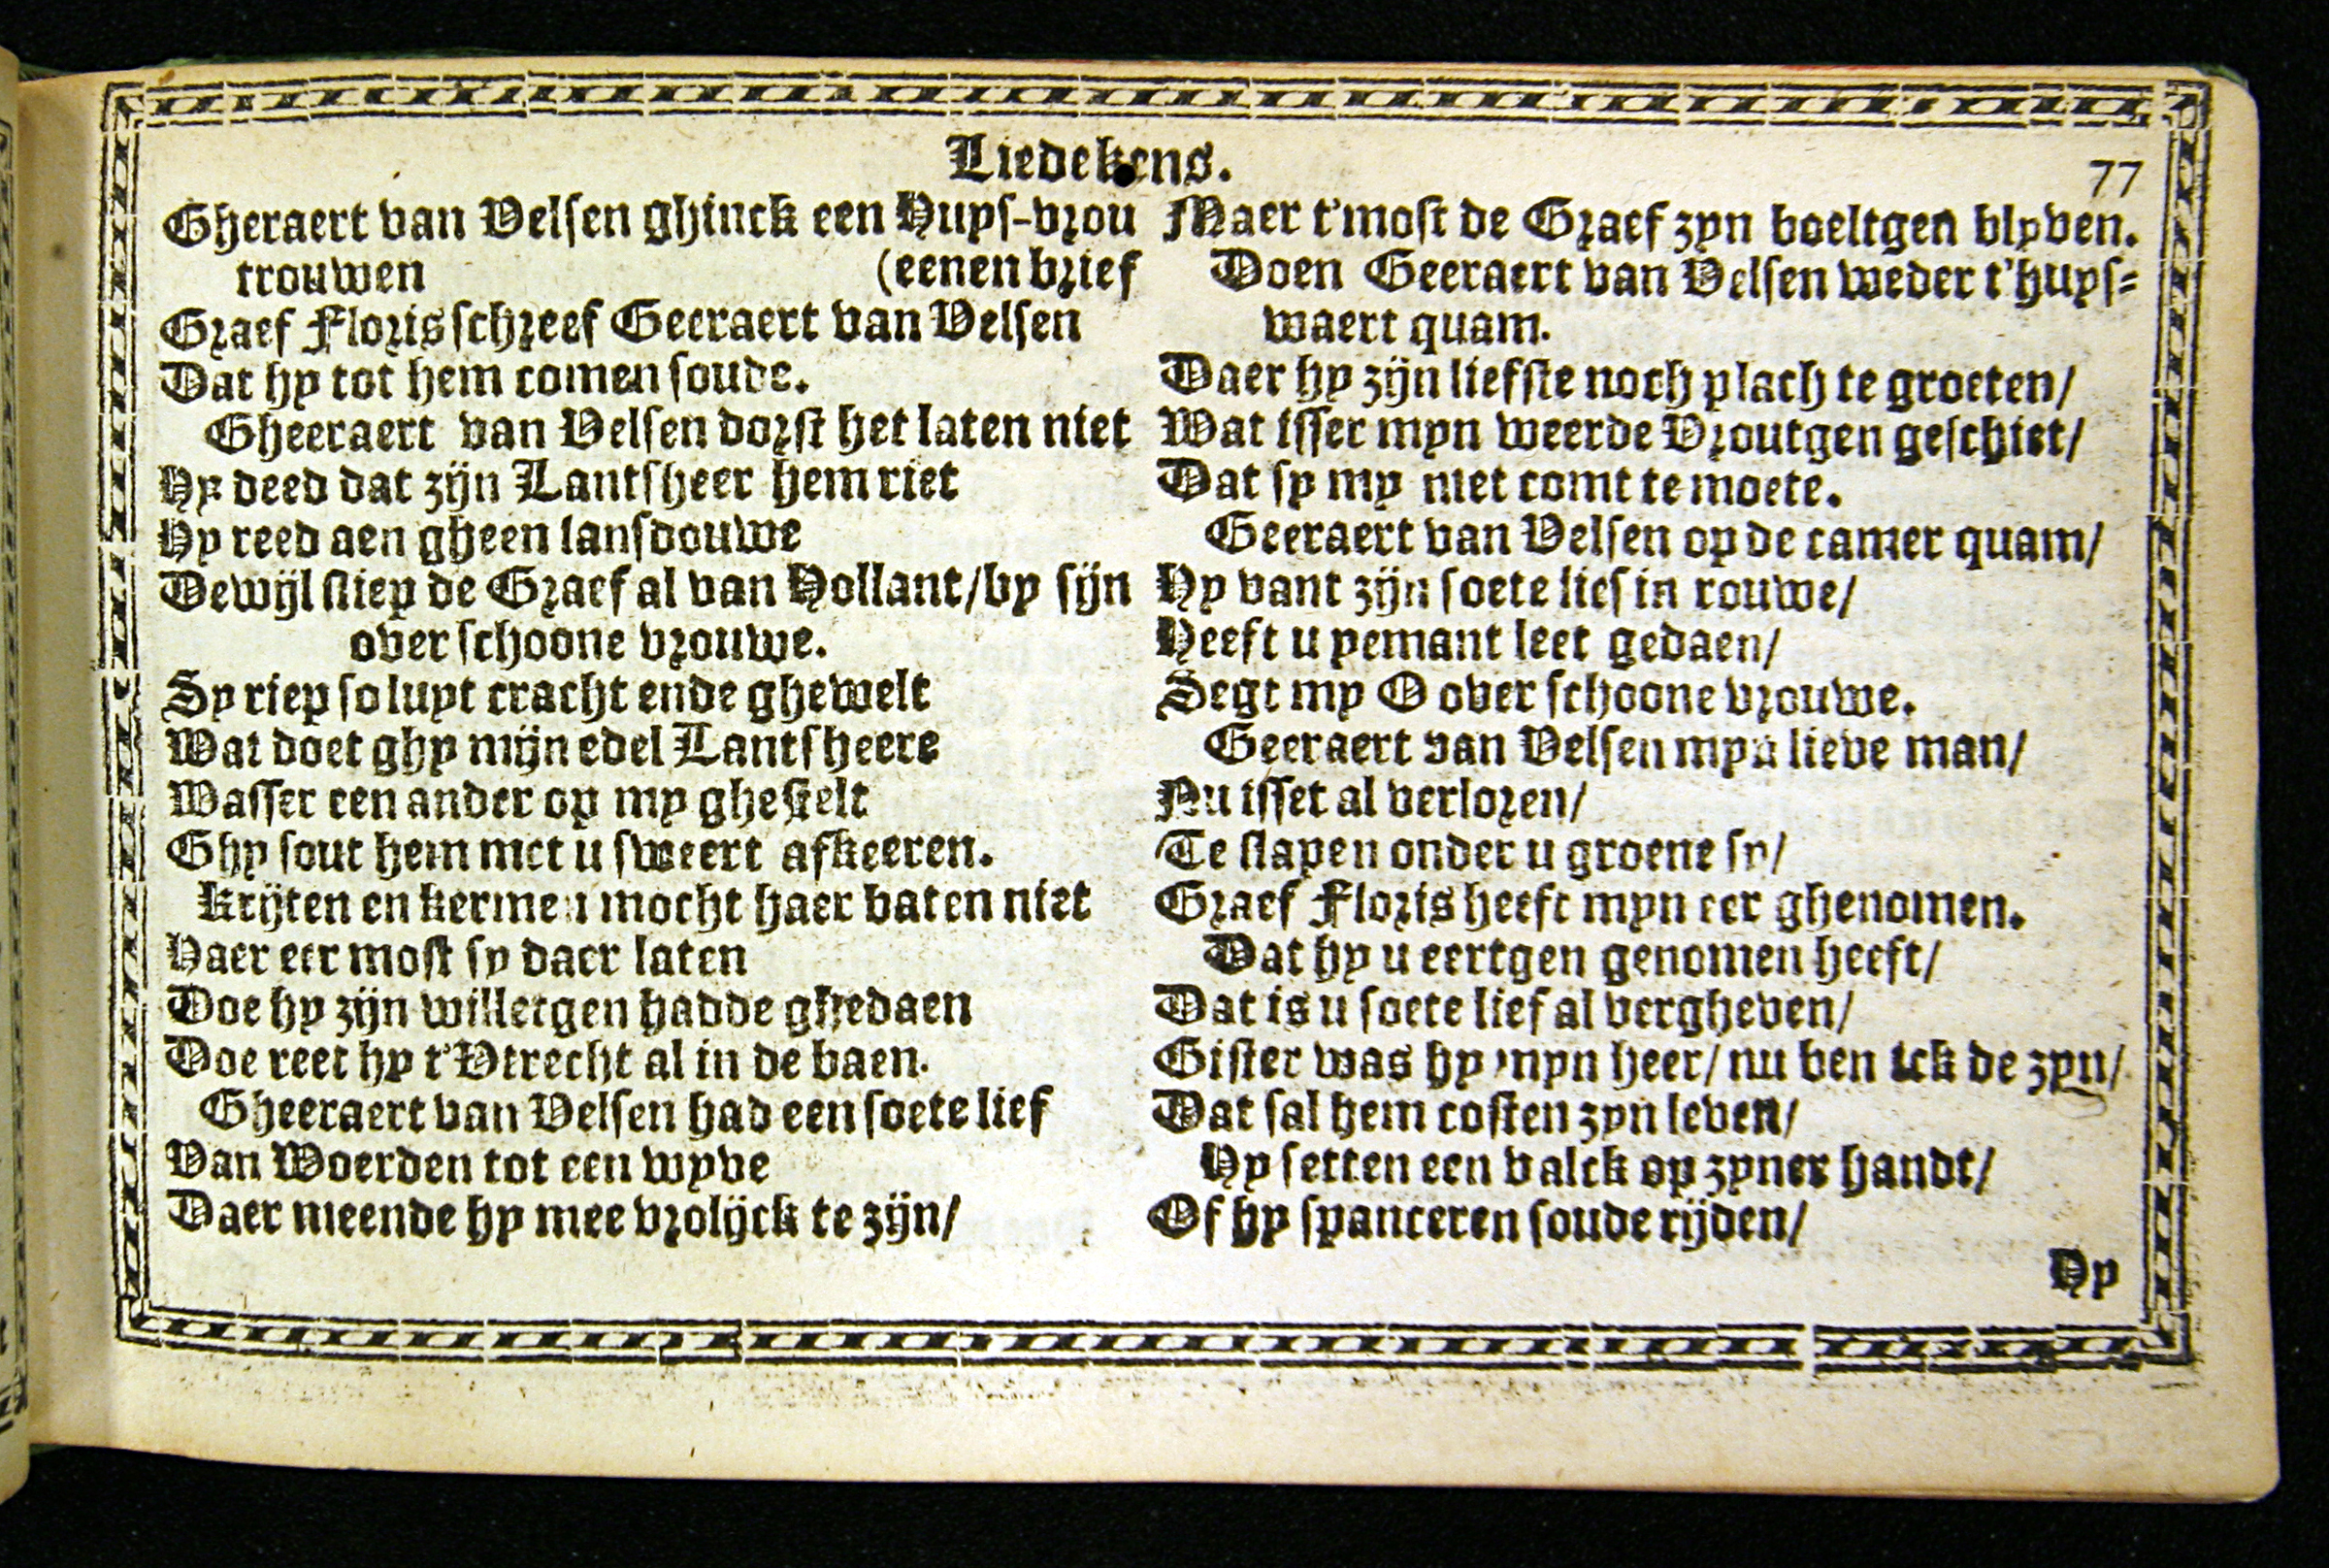 Liedekens.
77
Gheraert van Velsen ghinck een Huys-vrou
trouwen (eenen brief
Graef Floris schreef Geeraert van Velsen
Dat hy tot hem comen soude.
Gheeraert van Velsen dorst het laten niet
Hy deed dat zijn Lantsheer hem riet
Hy reed aen gheen lansdouwe
Dewijl sliep de Graef al van Hollant/by sijn
over schoone vrouwe.
Sy riep so luyt cracht ende ghewelt
Wat doet ghy mijn edel Lantsheere
Wasser een ander op my ghestelt
Ghy sout hem met u sweert afkeeren.
Krijten en kermen mocht haer baten niet
Haer eer most sy daer laten
Doe hy zijn willetgen hadde ghedaen
Doe reet hy t'Vtrecht al in de baen.
Gheeraert van Velsen had een soete lief
Van Woerden tot een wyve
Daer meende hy mee vrolijck te zijn/
Maer t'most de Graef zyn boeltgen blyven.
Doen Geeraert van Velsen weder t'huys-
waert quam.
Daer hy zijn liefste noch plach te groeten/
Wat isser myn weerde Vroutgen geschiet/
Dat sy my niet comt te moete.
Geeraert van Velsen op de camer quam/
Hy vant zijn soete lief in rouwe/
Heeft u yemant leet gedaen/
Segt my O over schoone vrouwe.
Geeraert van Velsen myn lieve man/
Nu isset al verloren/
Te slapen onder u groene sy/
Graef Floris heeft myn eer ghenomen.
Dat hy u eertgen genomen heeft/
Dat is u soete lief al vergheven/
Gister was hy myn heer/ nu ben ick de zyn/
Dat sal hem costen zyn leven/
Hy setten een valck op zyner handt/
Of hy spanceren soude rijden/
Hy